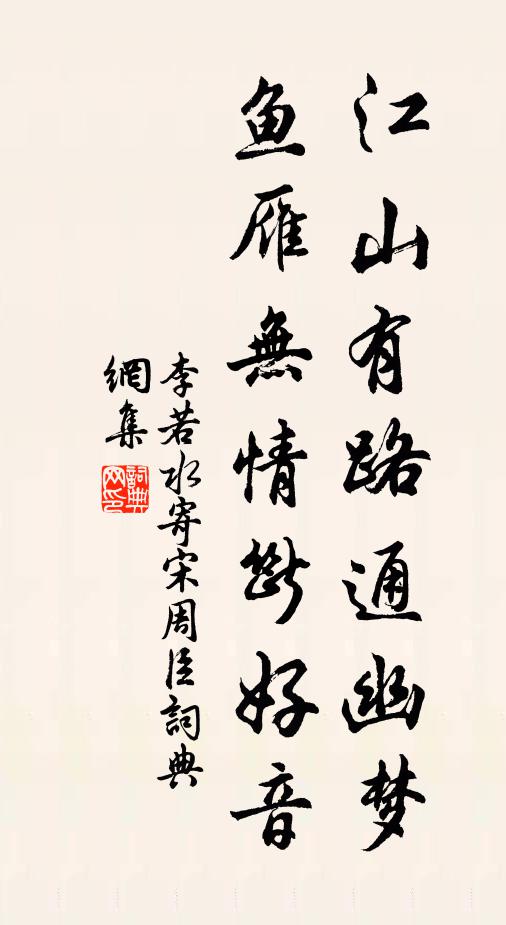 江山有路通幽梦
鱼雁無情斷好音
李若水寄宋周臣詞典
網集
詞典
网印